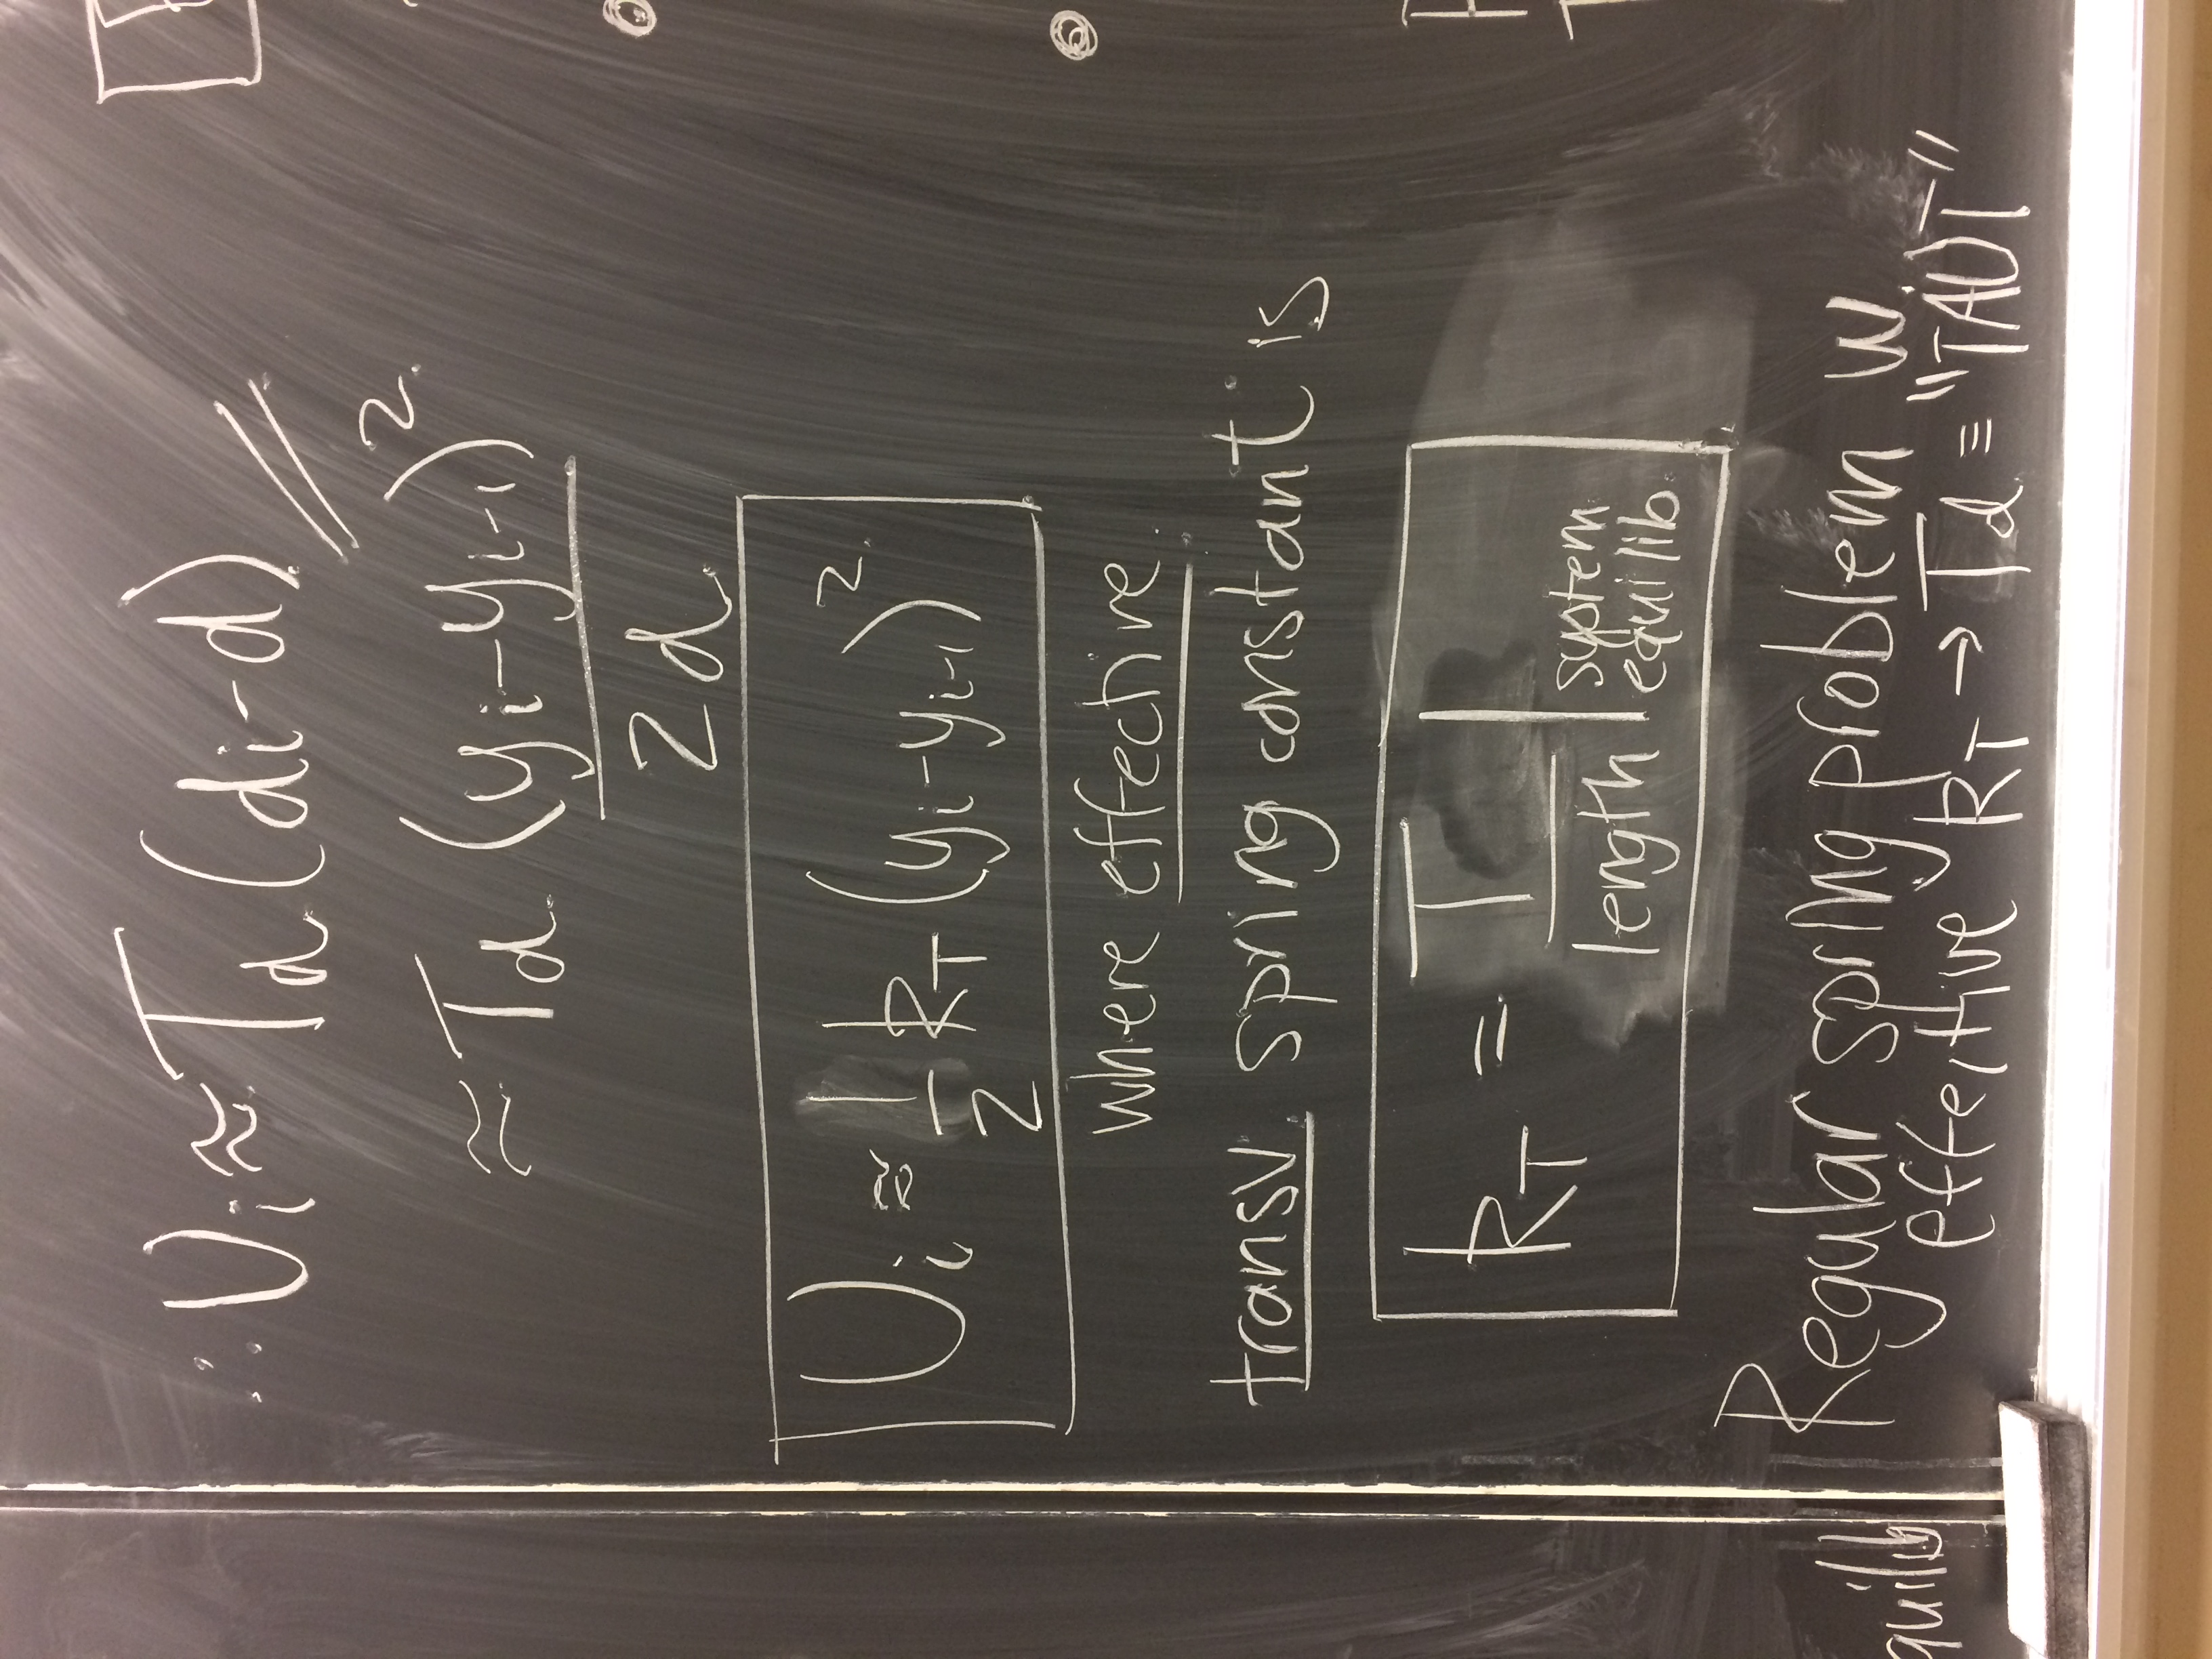 ∴ Ui ≈ Td (di-d)
≈ Td (yi-yi-1)²
2d
Ui ≈ 1/2 kT (yi-yi-1)²
where effective
transv. spring constant is
kT = T/length | system equilib.
Regular spring problem w.
effective kT → Td ≡ "TAUT"
quilib